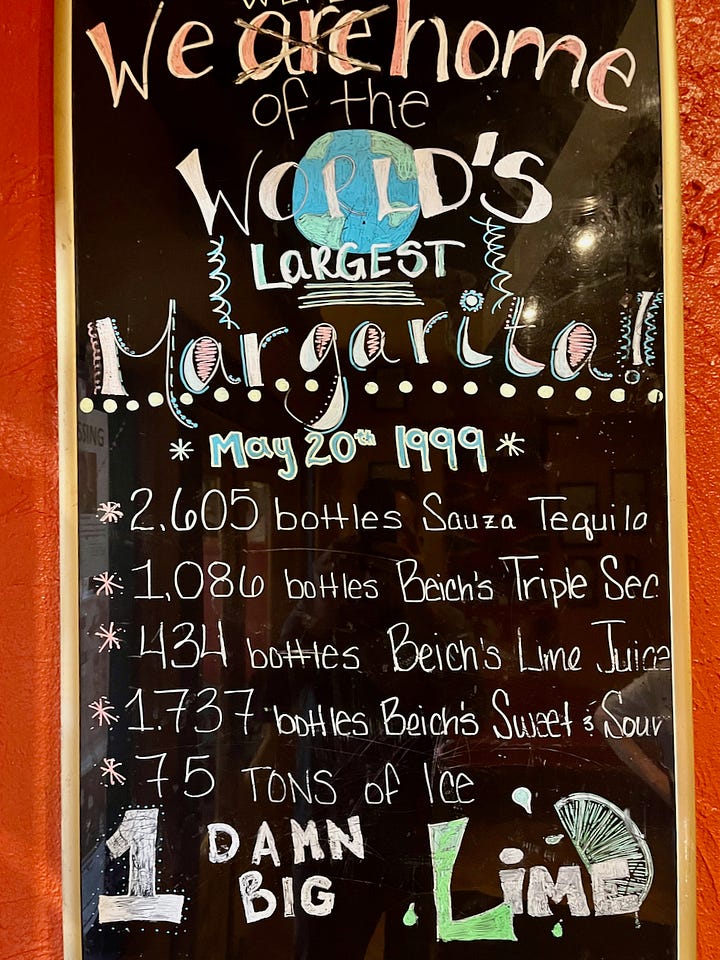 We are home
of the
WORLD'S
LARGEST
Margarita!
* May 20th 1999 *
* 2,605 bottles Sauza Tequila
* 1,086 bottles Beich's Triple Sec
* 434 bottles Beich's Lime Juice
* 1.737 bottles Beich's Sweet & Sour
* 75 TONS of Ice
1 DAMN BIG LiME